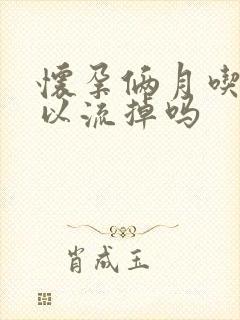 怀孕俩月喫
以流掉吗
肖成玉